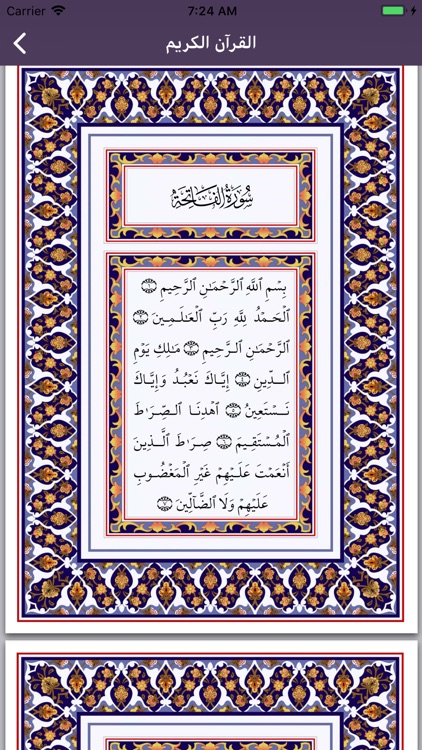 Carrier 7:24 AM
القرآن الكريم
سُورَةُ الفَاتِحَةِ
بِسْمِ ٱللَّهِ ٱلرَّحْمَٰنِ ٱلرَّحِيمِ ١
ٱلْحَمْدُ لِلَّهِ رَبِّ ٱلْعَٰلَمِينَ ٢
ٱلرَّحْمَٰنِ ٱلرَّحِيمِ ٣ مَٰلِكِ يَوْمِ
ٱلدِّينِ ٤ إِيَّاكَ نَعْبُدُ وَإِيَّاكَ
نَسْتَعِينُ ٥ ٱهْدِنَا ٱلصِّرَٰطَ
ٱلْمُسْتَقِيمَ ٦ صِرَٰطَ ٱلَّذِينَ
أَنْعَمْتَ عَلَيْهِمْ غَيْرِ ٱلْمَغْضُوبِ
عَلَيْهِمْ وَلَا ٱلضَّآلِّينَ ٧